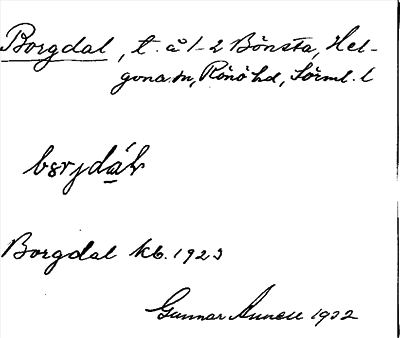 Borgdal, t. å 1-2 Bönsta, Hel-
gona sn, Rönö hd, Sörml. l
Borgdal kb. 1923
Gunnar 1932